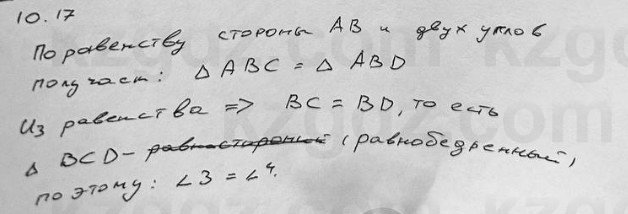 10.17
По равенству стороны AB и двух углов
получаем: Δ ABC = Δ ABD
Из равенства => BC = BD, то есть
Δ BCD - равносторонний (равнобедренный),
поэтому: ∠3 = ∠4.